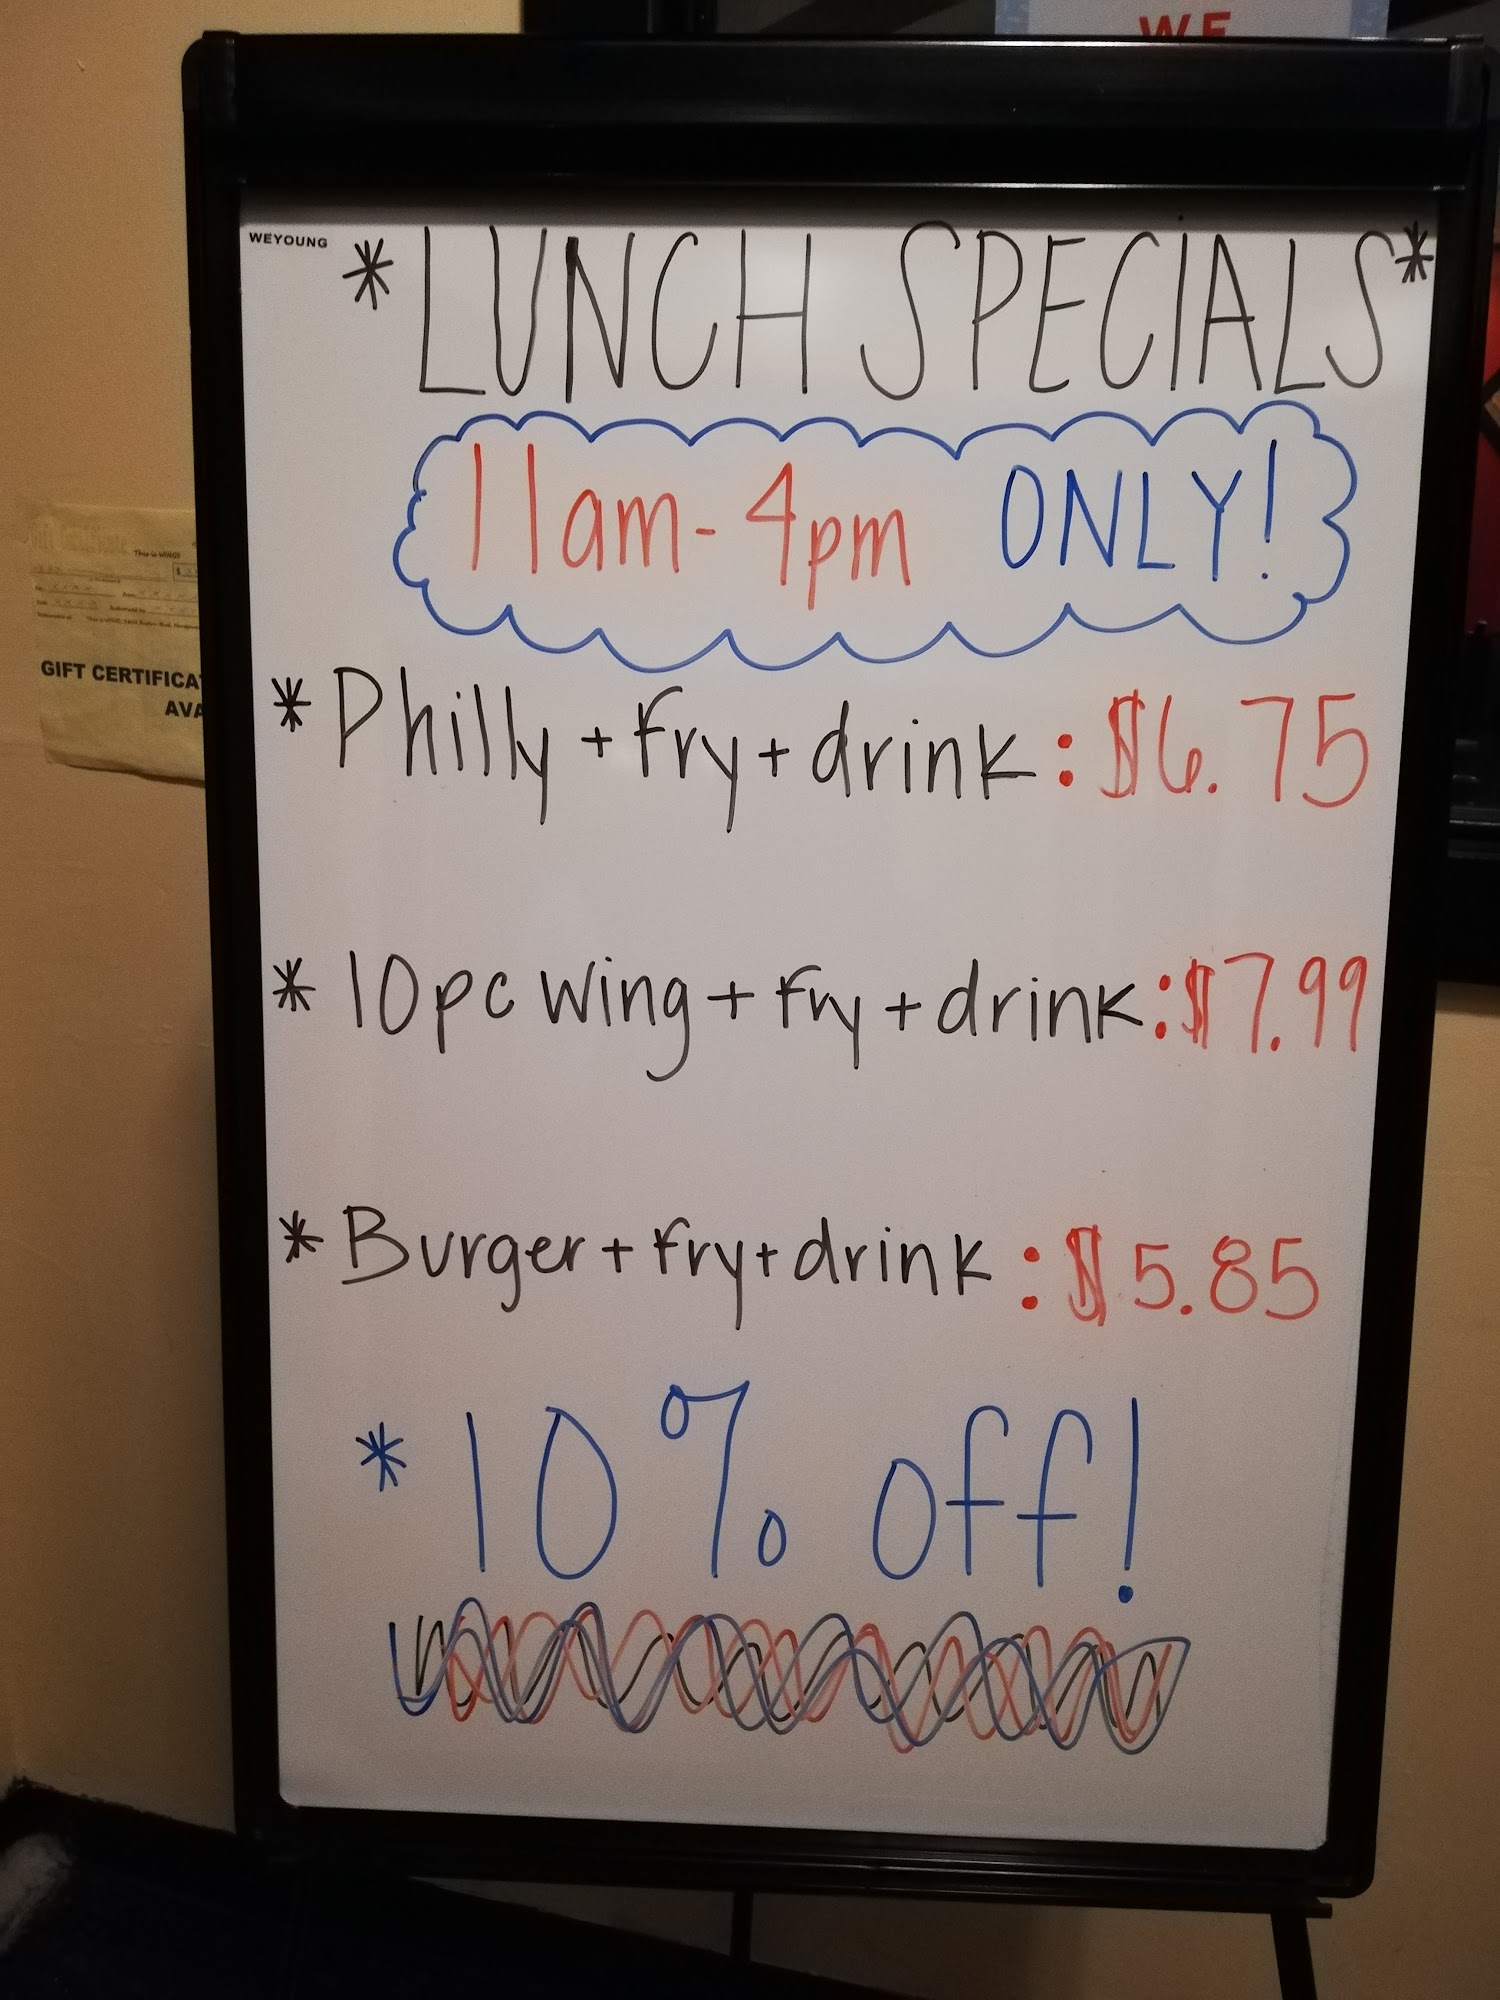 WE
WEYOUNG
*LUNCH SPECIALS*
11am-4pm ONLY!
*Philly + fry + drink: $6.75
* 10pc wing + fry + drink: $7.99
* Burger + fry + drink: $5.85
* 10% off!
This is WINGS
GIFT CERTIFICA
AVA